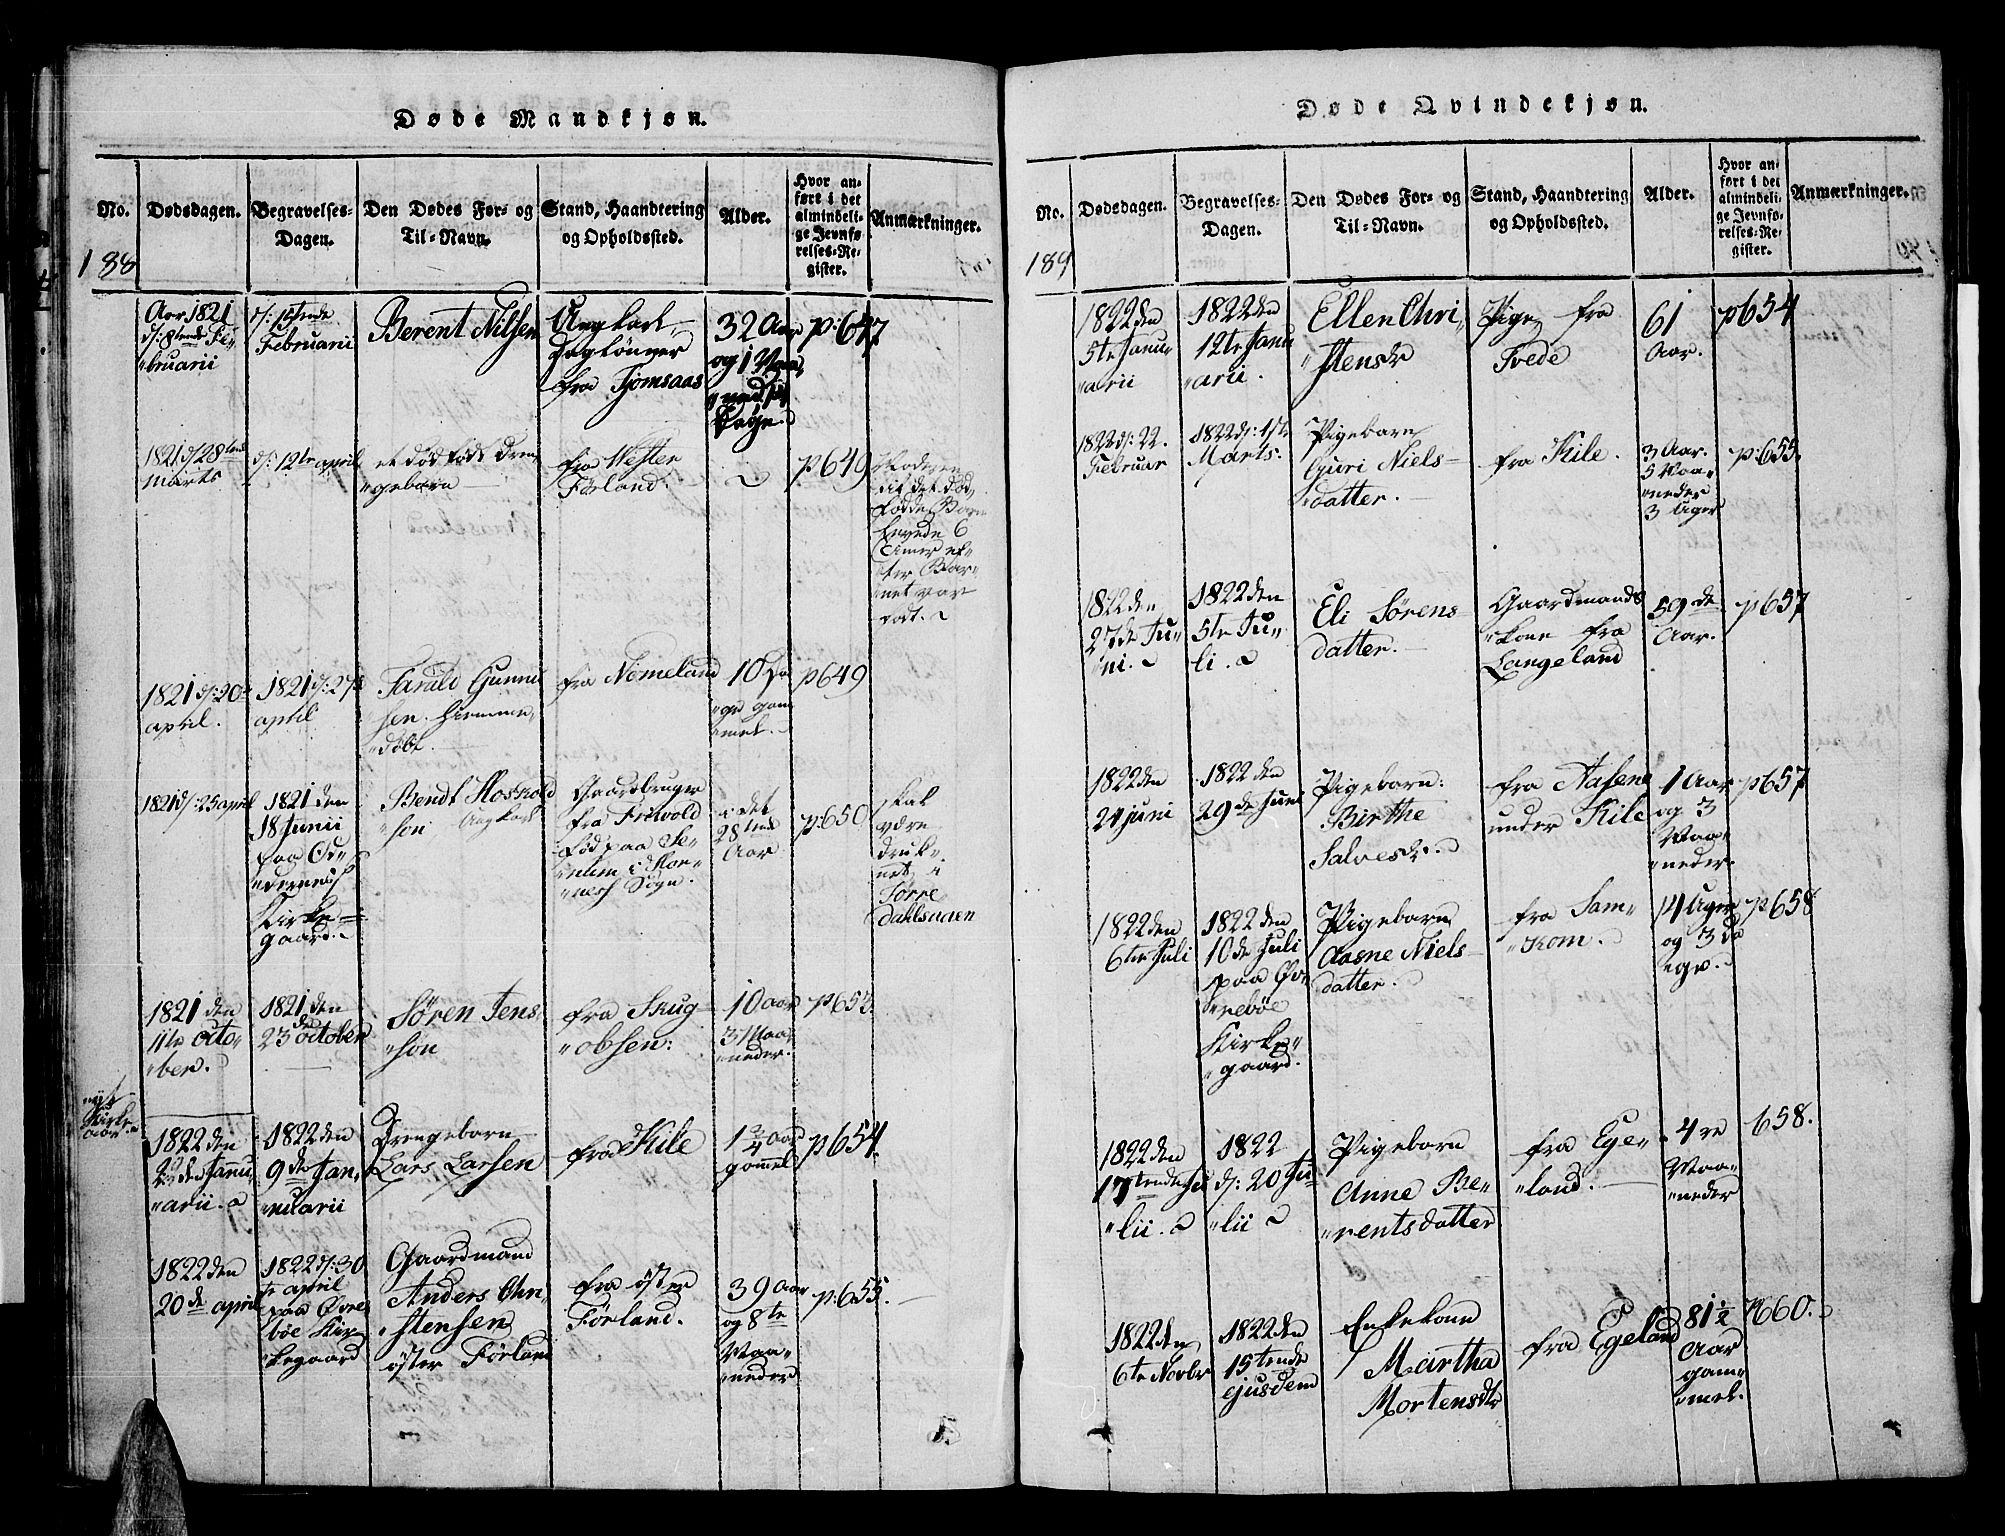 Døde Mandkjøn.
188
No. Dødsdagen. Begravelses-Dagen. Den Dødes For- og Til-Navn. Stand, Haandtering og Opholdssted. Alder. Hvor anført i det almindelige Jevnførelses-Register. Anmærkninger.
Aar 1821
d: 8tende Fe-
bruarii
d: 15tende
Februarii
Berent Nilsen
Ungkarl
Daglønner
fra Tjomsaas
32 Aar
og 1 Maa-
p: 647
1821 d: 28tende
Marts
d: 12te april
et dødfødt Dren-
gebarn
fra Wester
Førland.
p649
Moderen
til det død
fødde Barn
levede 6
Timer ef-
ter Bar-
net var
født.
1821 d: 20
april.
1821 d: 27de
april
Tarald Gunnu
sen. hiemme
døbt.
fra Nømeland
10 Da
ge gam
mel.
p649
1821 d: 25 april
1821 den
18 Junii
paa Od-
dernes
Kirke-
gaard.
Bendt Hoskold
søn Ungkarl
Gaardbruger
fra Friwold
fød paa Se-
i Hor-
nes Sogn.
i det
28tende
Aar
p: 650
skal
være
druk-
net i
Torre
dahlsaaen
1821 den
11te Octo-
ber.
1821 den
23de October
Søren Jens
søn
fra Skug-
obsen:
10 aar
3 Maa-
neder.
p652
nyt
Kirke-
aar
1822 den
2den Janu
arii.
1822 den
9de Jan-
nuarii
Drengebarn
Lars Larsen
fra Kile
1 3/4 aar
gammel
p654.
1822 den
20de april
1822 d: 30
te april
paa Øvre
bøe Kir
kegaard
Gaardmand
Anders Chri
stensen
øster Førland
fra øster
Førland.
39 Aar
og 8te
Maa-
neder
p: 655.
Døde Qvindekjøn.
189
No. Dødsdagen. Begravelses-Dagen. Den Dødes For- og Til-Navn. Stand, Haandtering og Opholdssted. Alder. Hvor anført i det almindelige Jevnførelses-Register. Anmærkninger.
1822 den
5te Janu-
arii
1822 den
12te Janu
arii.
Ellen Chri-
stensdr
Pige fra
Tvede
61
Aar.
p654
1822 d: 22.
Februar
1822 d: 1ste
Marts.
Pigebarn
Guri Niels-
datter.
fra Kile.
3 Aar.
5 Maa-
neder
3 Uger
p: 655.
1822 den
27de Ju-
ni.
1822 den
5te Ju-
li.
Eli Sørens-
datter.
Gaardmands
kone fra
Langeland
59de
Aar.
p657
1822 den
24 juni
1822 den
29de Juni
Pigebarn:
Birthe
Salvesdr.
fra Aasene
under Kile
1 Aar
og 3
Maa-
neder.
p657
1822 den
6te Juli
1822 den
10de Juli
paa Øv-
rebøe
Kirke-
gaard.
Pigebarn
Aasne Niels-
datter.
fra Sam-
kom.
14 Uger
og 3 Da
ge.
p658
1822 den
17tende Ju
lii.
1822
d: 20 Ju-
lii
Pigebarn
Anne Be-
rentsdatter
fra Ege-
land.
4re
Maa-
neder
658.
1822 den
6te Novbr
1822 den
15tende
ejusdem
Enkekone
Martha
Mortensdtr
fra Egeland
81 1/2
Aar
gam-
mel.
p660.